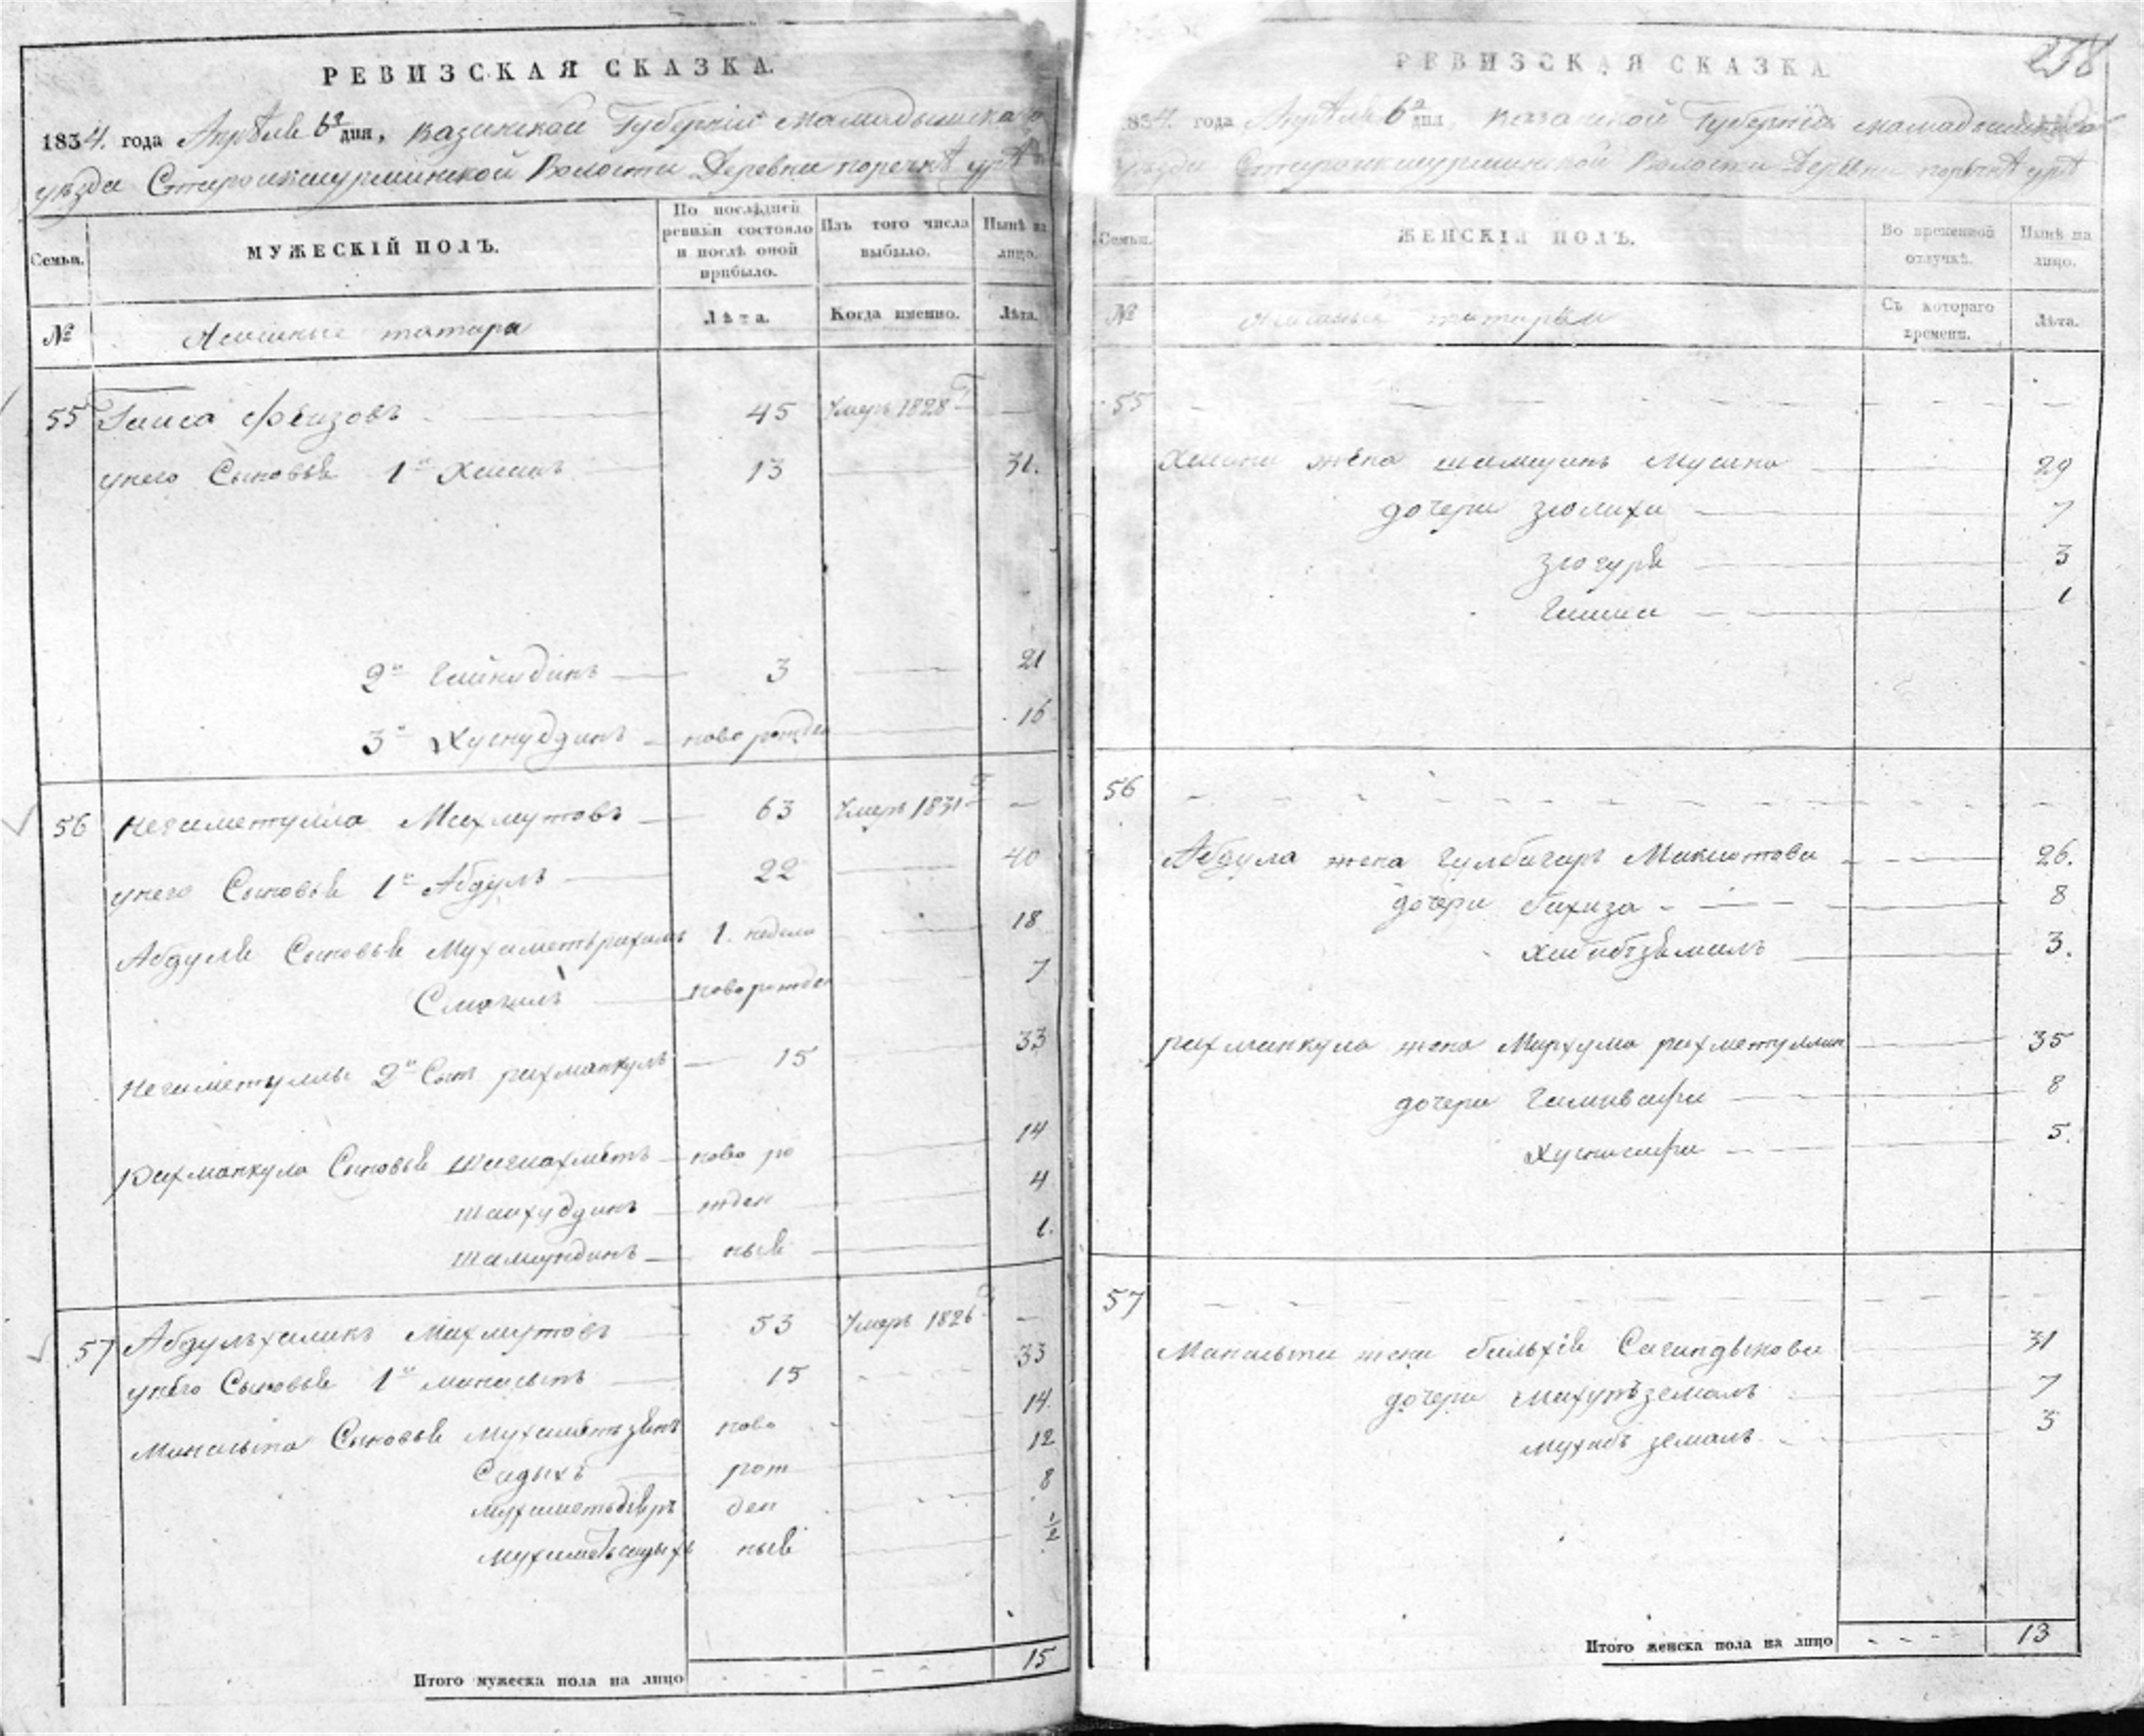 РЕВИЗСКАЯ СКАЗКА.
1834. года Апрѣля 6го дня, Казанской Губерніи Мамадышскаго
уѣзда Староикшурминской Волости Деревни поречнѣ урѣ
Семьи.
МУЖЕСКІЙ ПОЛЪ.
По послѣдней ревизіи состояло и послѣ оной прибыло.
Изъ того числа выбыло.
Нынѣ на лицо.
№
Ясашные татара
Лѣта.
Когда именно.
Лѣта.
55 Гаиса Фѣизовъ 45 Умеръ 1828 —
унего Сыновья 1й Хасанъ 13 31.
2й Гайнудинъ 3 21
3й Хуснудинъ новорожден 16
56 Негаметулла Махмутовъ 63 Умеръ 1831 —
унего Сыновья 1й Абдулъ 22 40
Абдула Сыновья Мухаметьрахимъ 1. неделя 18
Смагилъ новорожден 7
Негаметуллы 2й Сынъ рахманкулъ 15 33
Рахманкула Сыновья Шагиахметъ ново ро 14
Шайхудинъ жден 4
Шамсундинъ ныя 1.
57 Абдулъхаликъ Махмутовъ 53 Умеръ 1826 —
унего Сыновья 1й манасыпъ 15 33
Манасыпа Сыновья Мухаметьзянъ ново 14.
Садыкъ рож 12
Мухаметьдіяръ ден 8
Мухаметьсадыкъ ныя 1/2
Итого мужеска пола на лицо - - - 15
238
РЕВИЗСКАЯ СКАЗКА.
1834. года Апрѣля 6го дня Казанской Губерніи Мамадышскаго
уѣзда Староикшурминской Волости Деревни поречнѣ урѣ
Семьи.
ЖЕНСКІЙ ПОЛЪ.
Во временной отлучкѣ.
Нынѣ на лицо.
№
Ясашные татарки
Съ котораго времени.
Лѣта.
55
Хасана жена шамсуинъ Мусина 29
дочери Зюлиха 7
Зюгуря 3
1
56
Абдула жена Гулбагаръ Макшотова 26.
дочери бахиза 8
Хабибъзямалъ 3.
рахманкула жена Мархума рахметуллина 35
дочери Галивафа 8
Хуснасафа 5.
57
Манасыпа жена бальхія Сагиндыкова 31
дочери Махупъземалъ 7
Мухибъ земалъ 3
Итого женска пола на лицо - - - 13